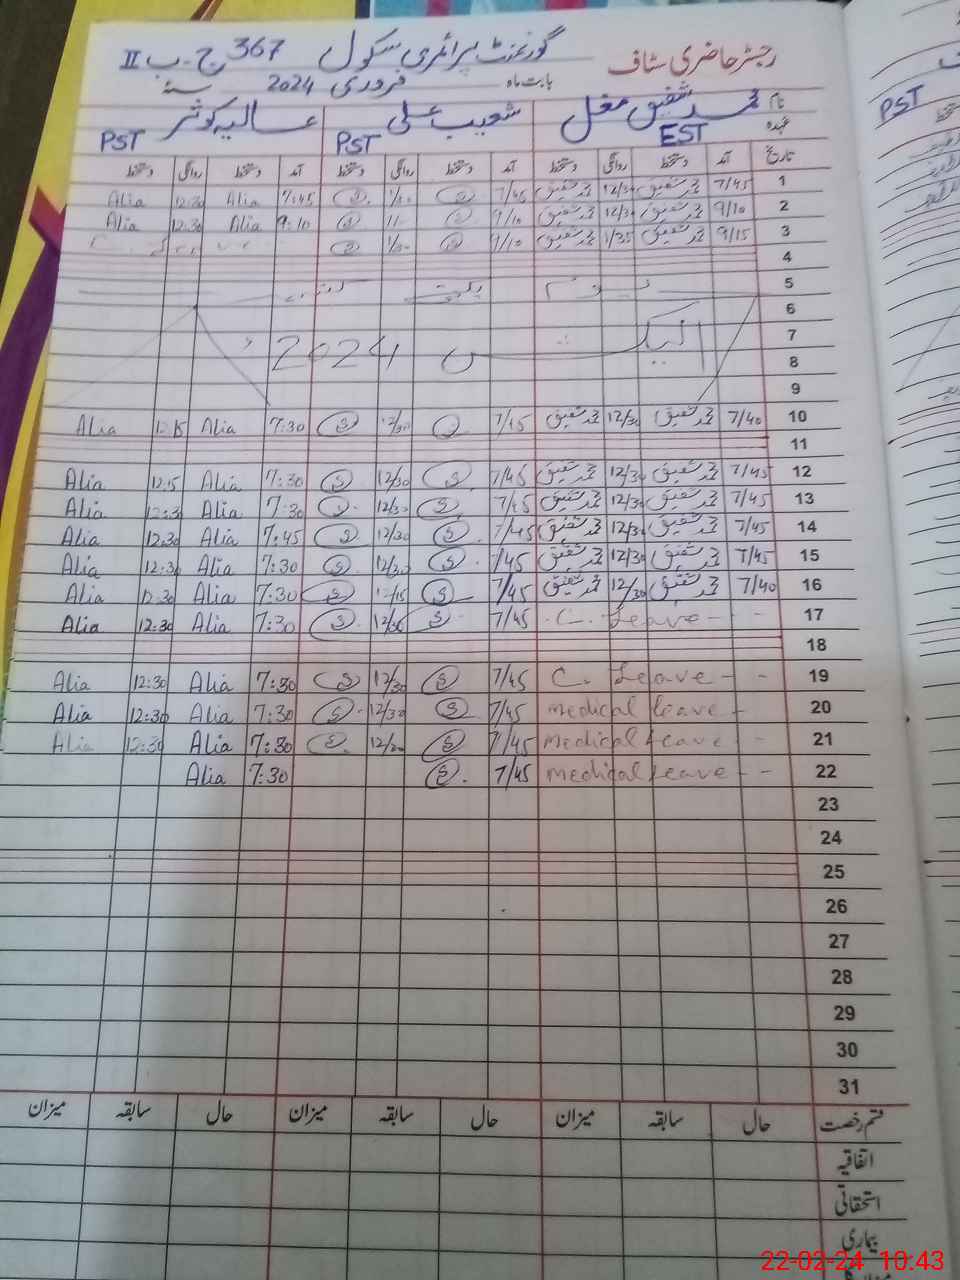 رجسٹر حاضری سٹاف گورنمنٹ پرائمری سکول 367 ج۔ب II
بابت ماہ فروری 2024 سنہ
نام محمد شفیق مغل شعیب علی عالیہ کوثر
عہدہ EST PST PST
تاریخ آمد دستخط روانگی دستخط آمد دستخط روانگی دستخط آمد دستخط روانگی دستخط
1 7/45 محمد شفیق 12/30 محمد شفیق 7/45 7:45 Alia 12:30 Alia
2 9/10 محمد شفیق 12/30 محمد شفیق 9/10 9:10 Alia 12:30 Alia
3 9/15 محمد شفیق 1/35 محمد شفیق 9/10 1/30
4
5
6
7 الیکشن 2024
8
9
10 7/40 محمد شفیق 12/30 محمد شفیق 7/45 12/30 7:30 Alia 12:15 Alia
11
12 7/45 محمد شفیق 12/30 محمد شفیق 7/45 12/30 7:30 Alia 12:15 Alia
13 7/45 محمد شفیق 12/30 محمد شفیق 7/45 12/30 7:30 Alia 12:30 Alia
14 7/45 محمد شفیق 12/30 محمد شفیق 7/45 12/30 7:45 Alia 12:30 Alia
15 7/45 محمد شفیق 12/30 محمد شفیق 7/45 12/30 7:30 Alia 12:30 Alia
16 7/40 محمد شفیق 12/30 محمد شفیق 7/45 12/15 7:30 Alia 12:30 Alia
17 C. Leave - - 7/45 12/30 7:30 Alia 12:30 Alia
18
19 C. Leave - - 7/45 12/30 7:30 Alia 12:30 Alia
20 medical leave - 7/45 12/30 7:30 Alia 12:30 Alia
21 medical leave - 7/45 12/30 7:30 Alia 12:30 Alia
22 medical leave - - 7/45 7:30 Alia
23
24
25
26
27
28
29
30
31
قسم رخصت حال سابقہ میزان حال سابقہ میزان حال سابقہ میزان
اتفاقیہ
استحقاقی
بیماری
PST
22-02-24 10:43